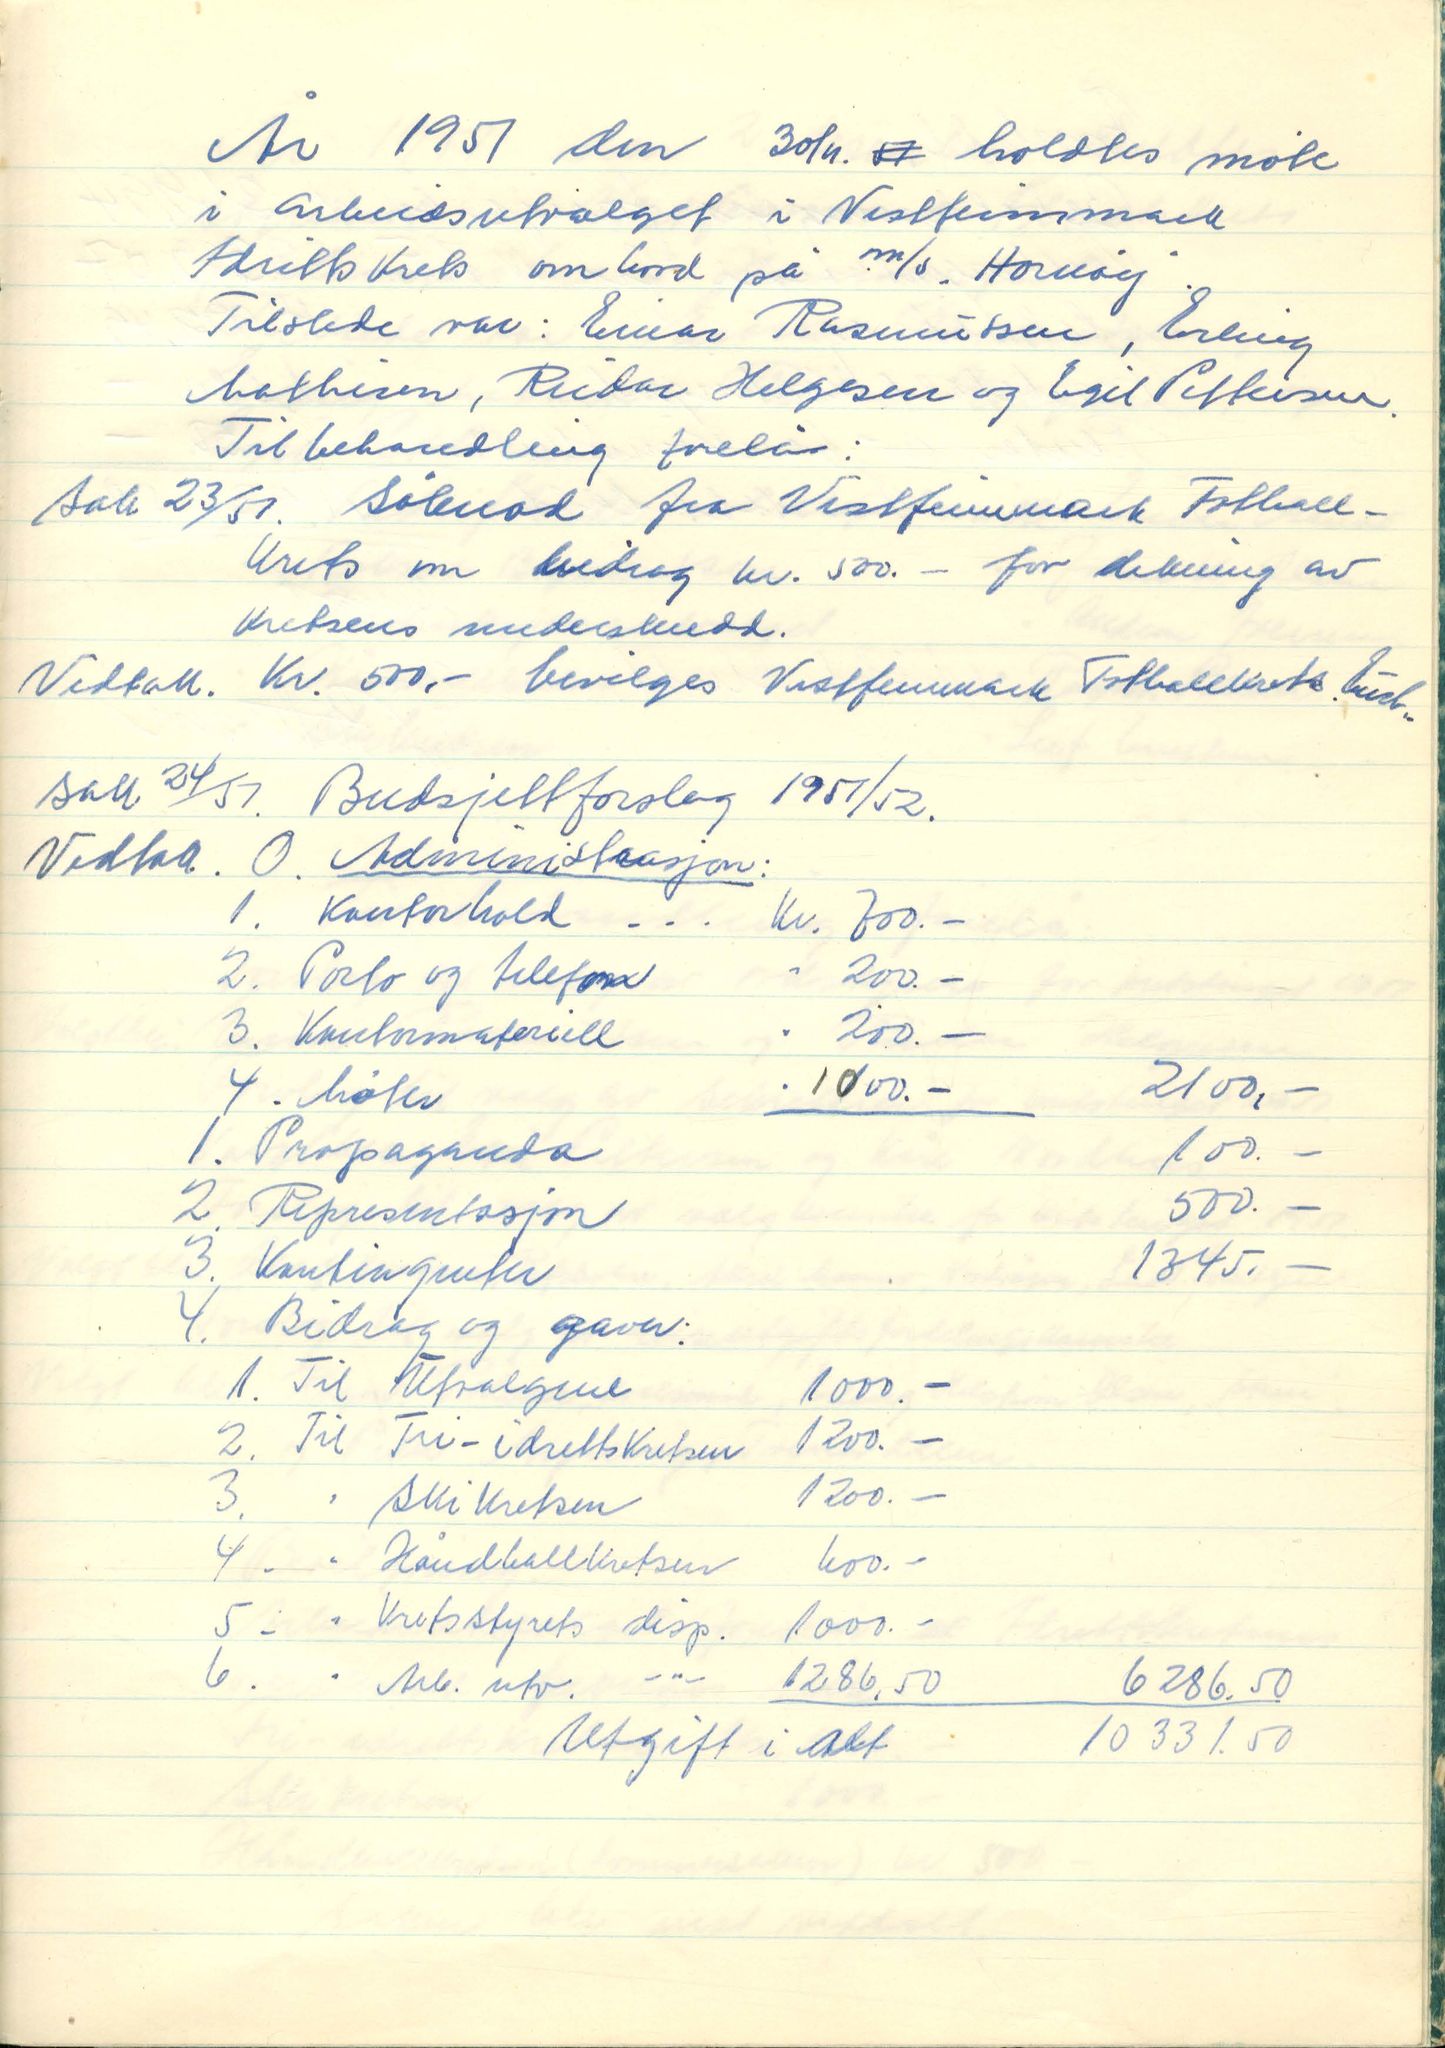 År 1951 den 30/11. holdtes møte
i arbeidsutvalget i Vestfinnmark
Idrettskrets ombord på m/s. Hornøy.
Tilstede var: Einar Rasmussen, Erling
Mathisen, Reidar Helgesen og Egil Pettersen.
Til behandling forelå:
Sak 23/51. Søknad fra Vestfinnmark Fotball-
krets om bidrag kr. 500.- for dekning av
kretsens underskudd.
Vedtak. Kr. 500,- bevilges Vestfinnmark Fotballkrets. Enst..
Sak 24/51. Budsjettforslag 1951/52.
Vedtak. 0. Administrasjon:
1. Kontorhold - . . Kr. 700.-
2. Porto og telefon " 200.-
3. Kontormateriell " 200.-
4. Møter " 1000.- 2100,-
1. Propaganda 100.-
2. Representasjon 500.-
3. Kontingenter 1345.-
4. Bidrag og gaver:
1. Til Utvalgene 1000.-
2. Til Fri-idrettskretsen 1200.-
3. " Skikretsen 1200.-
4. " Håndballkretsen 600.-
5. " Kretsstyrets disp. 1000.-
6. " Arb. utv. -"- 1286,50 6286.50
Utgift i alt 10331.50